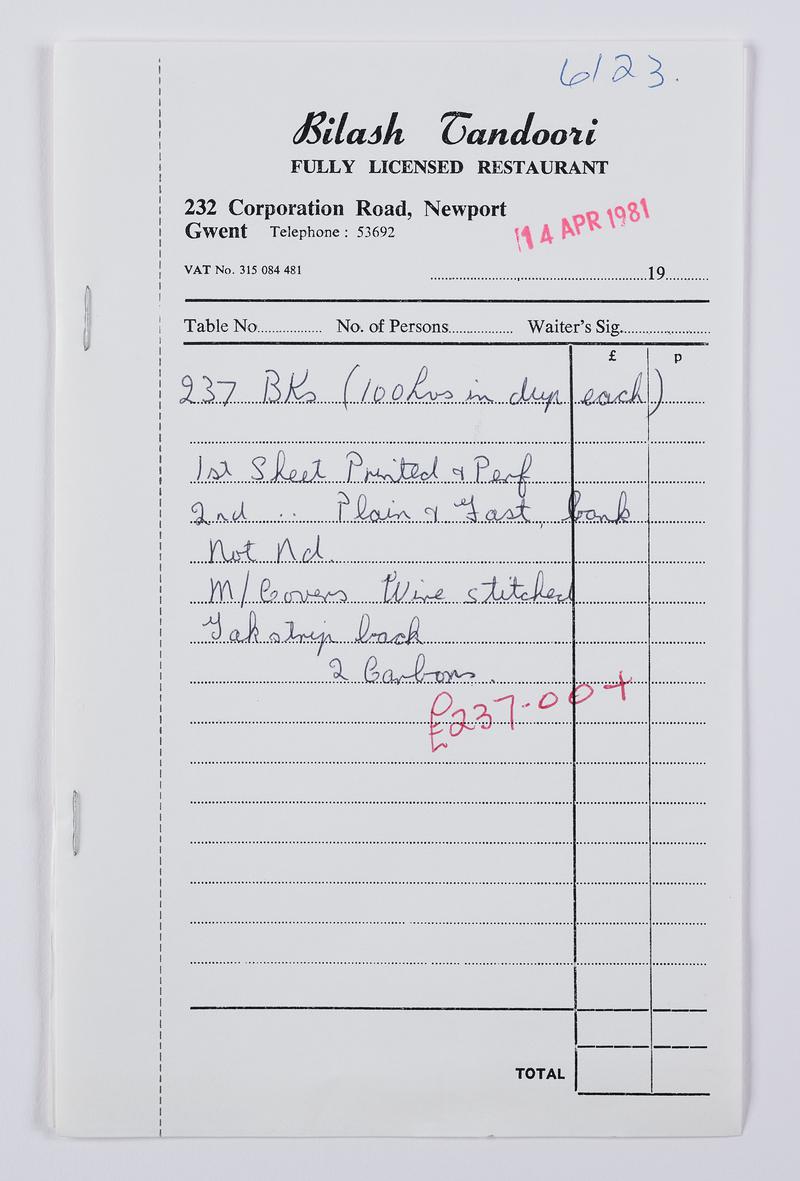 6123.
Bilash Tandoori
FULLY LICENSED RESTAURANT
232 Corporation Road, Newport
Gwent Telephone : 53692
14 APR 1981
VAT No. 315 084 481
19
Table No. No. of Persons Waiter's Sig.
£ p
237 BKs (100 in dup each)
1st Sheet Printed & Perf
2nd .. Plain & Fast, bank
Not Nd.
M/Covers Wire stitched
strip back
2 Carbons.
£237-00+
TOTAL